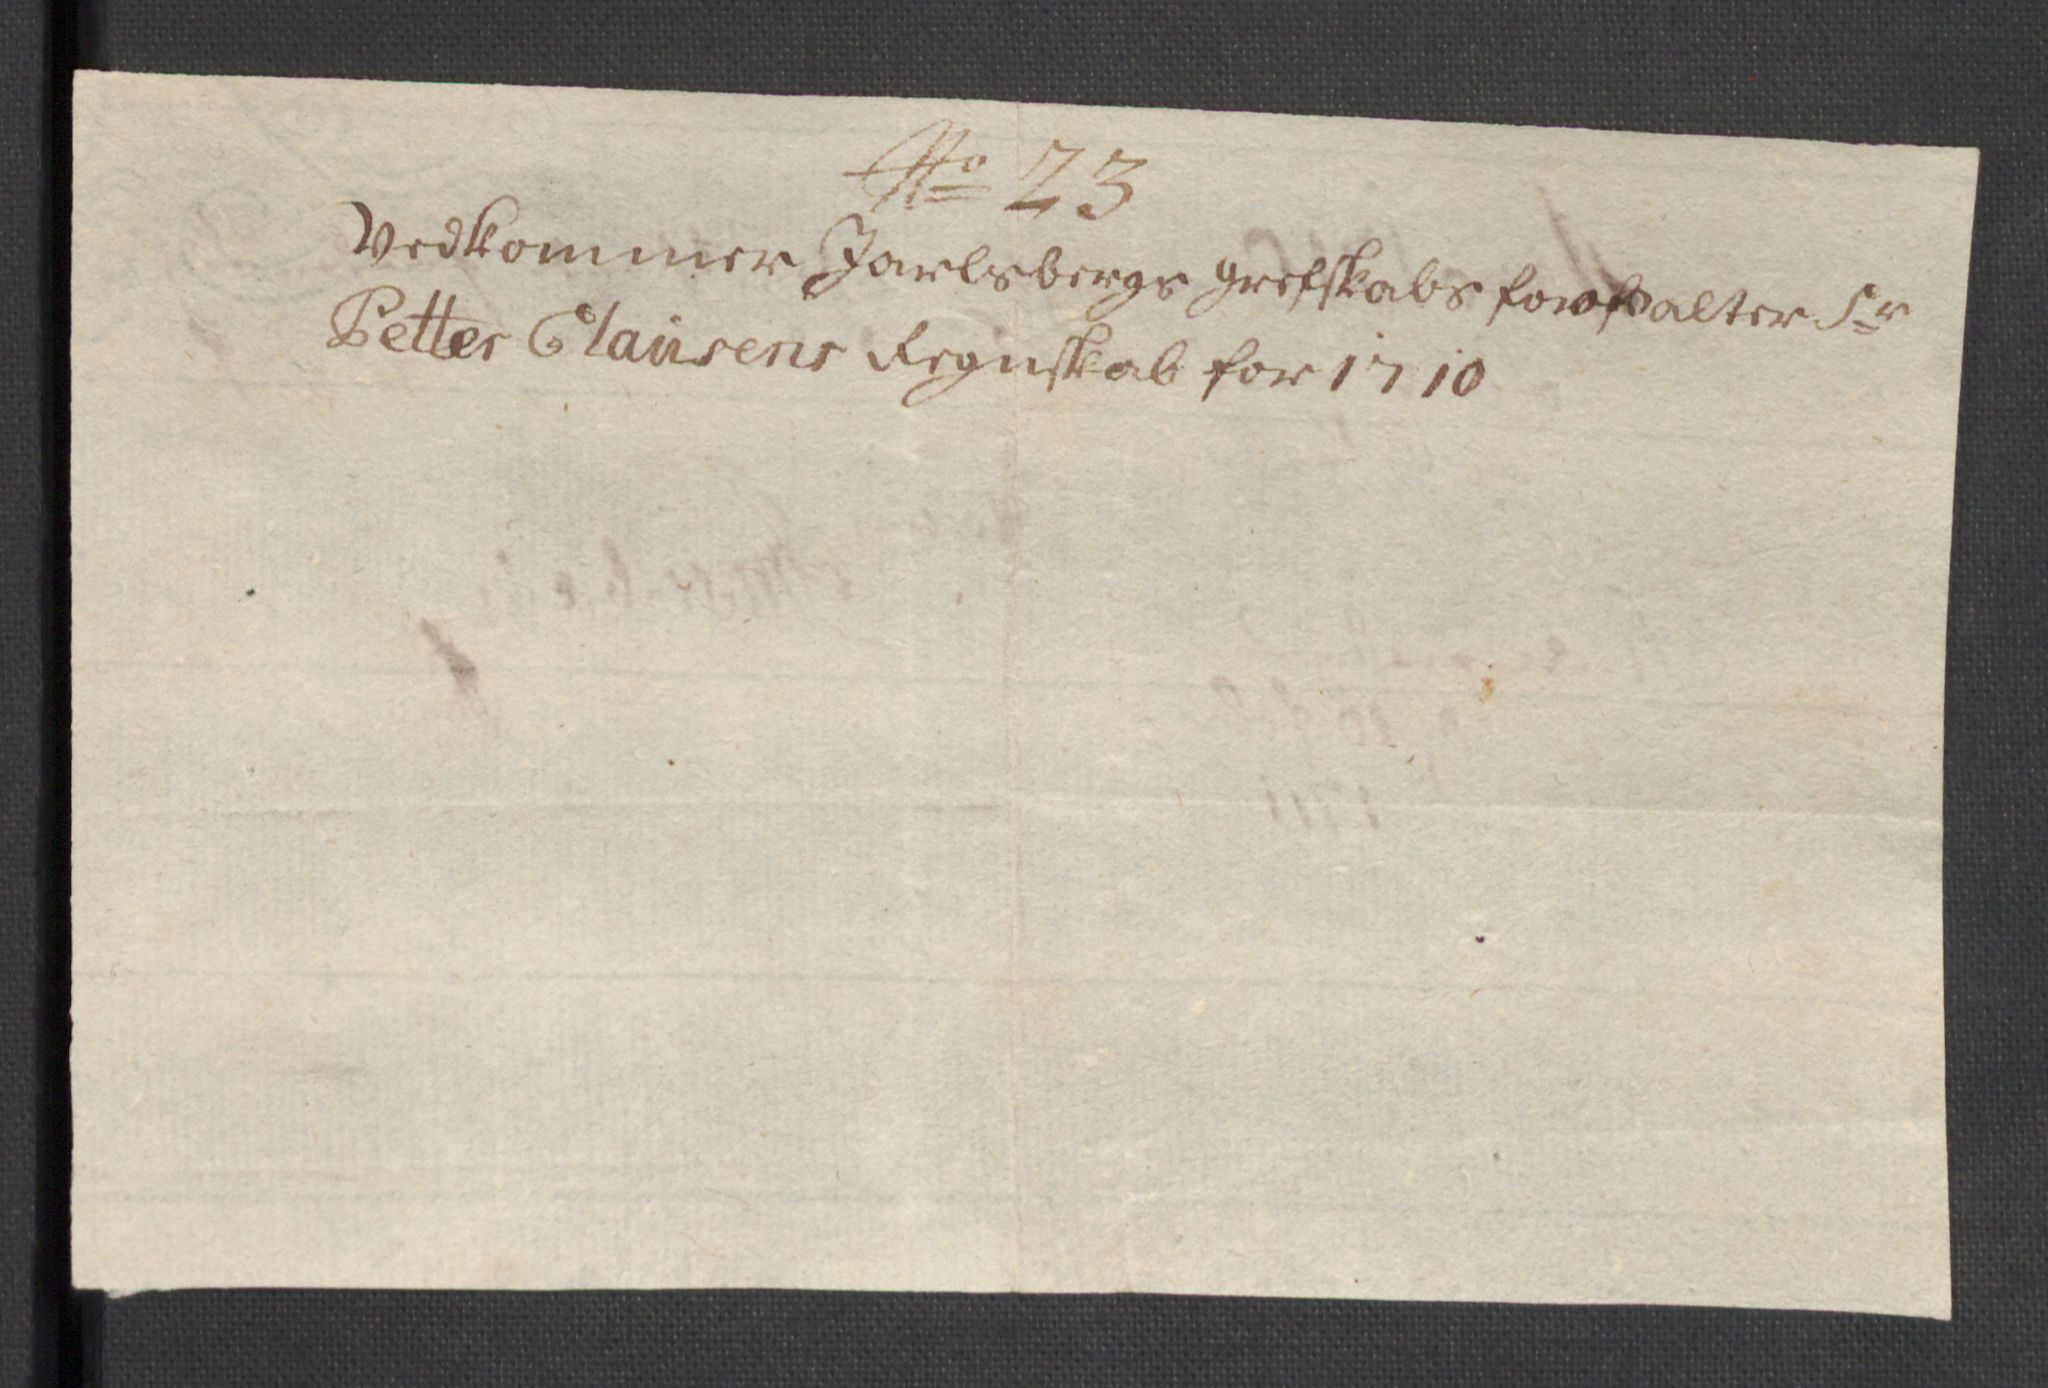 No 23
Vedkommer Jarlsbergs grefskabs forvalter Sr
Petter Clausens Regnskab for 1710